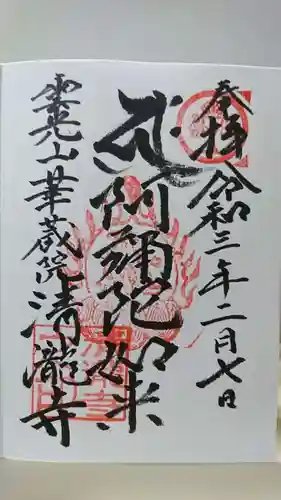 奉拝
令和三年二月七日
阿彌陀如来
雲光山華蔵院清瀧寺